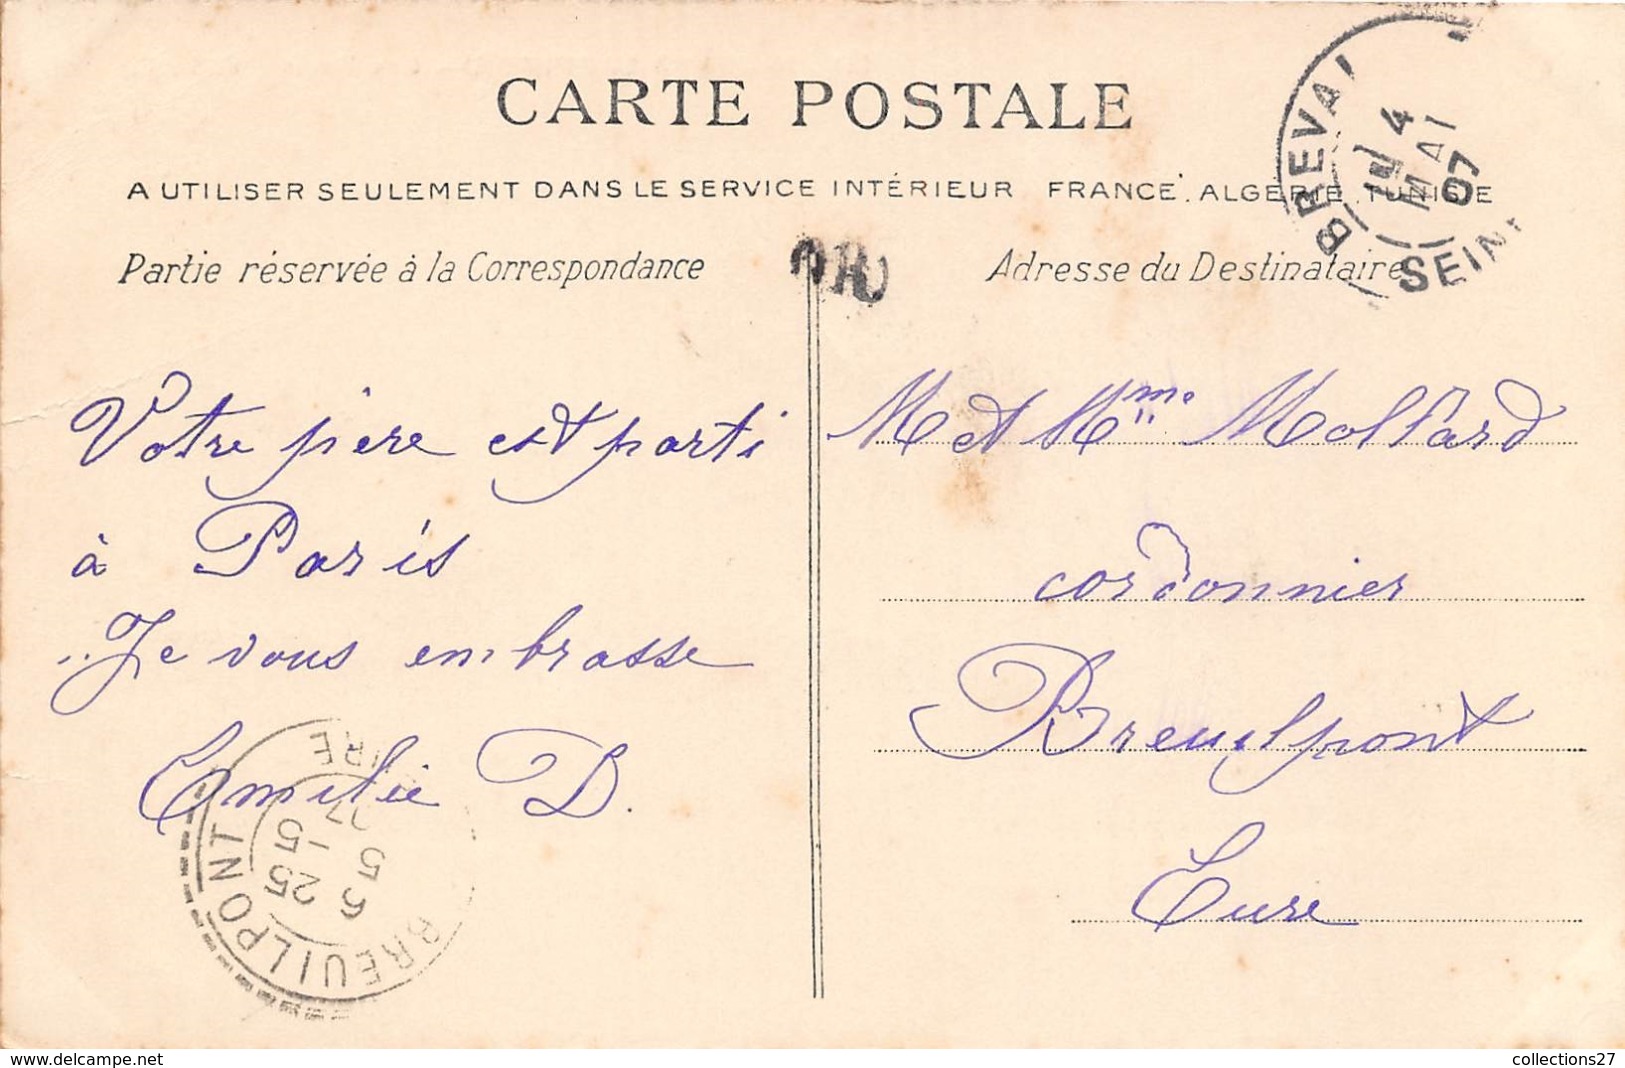 CARTE POSTALE
A UTILISER SEULEMENT DANS LE SERVICE INTÉRIEUR FRANCE. ALGÉRIE. TUNISIE
Partie réservée à la Correspondance
Adresse du Destinataire
BREVAL
4
MAI
07
SEINE
Votre père est parti
à Paris
Je vous embrasse
Emilie D.
M et Mme Mollard
cordonnier
Breuilpont
Eure
BREUILPONT
EURE
6 25
5 -5
07
www.delcampe.net
collections27